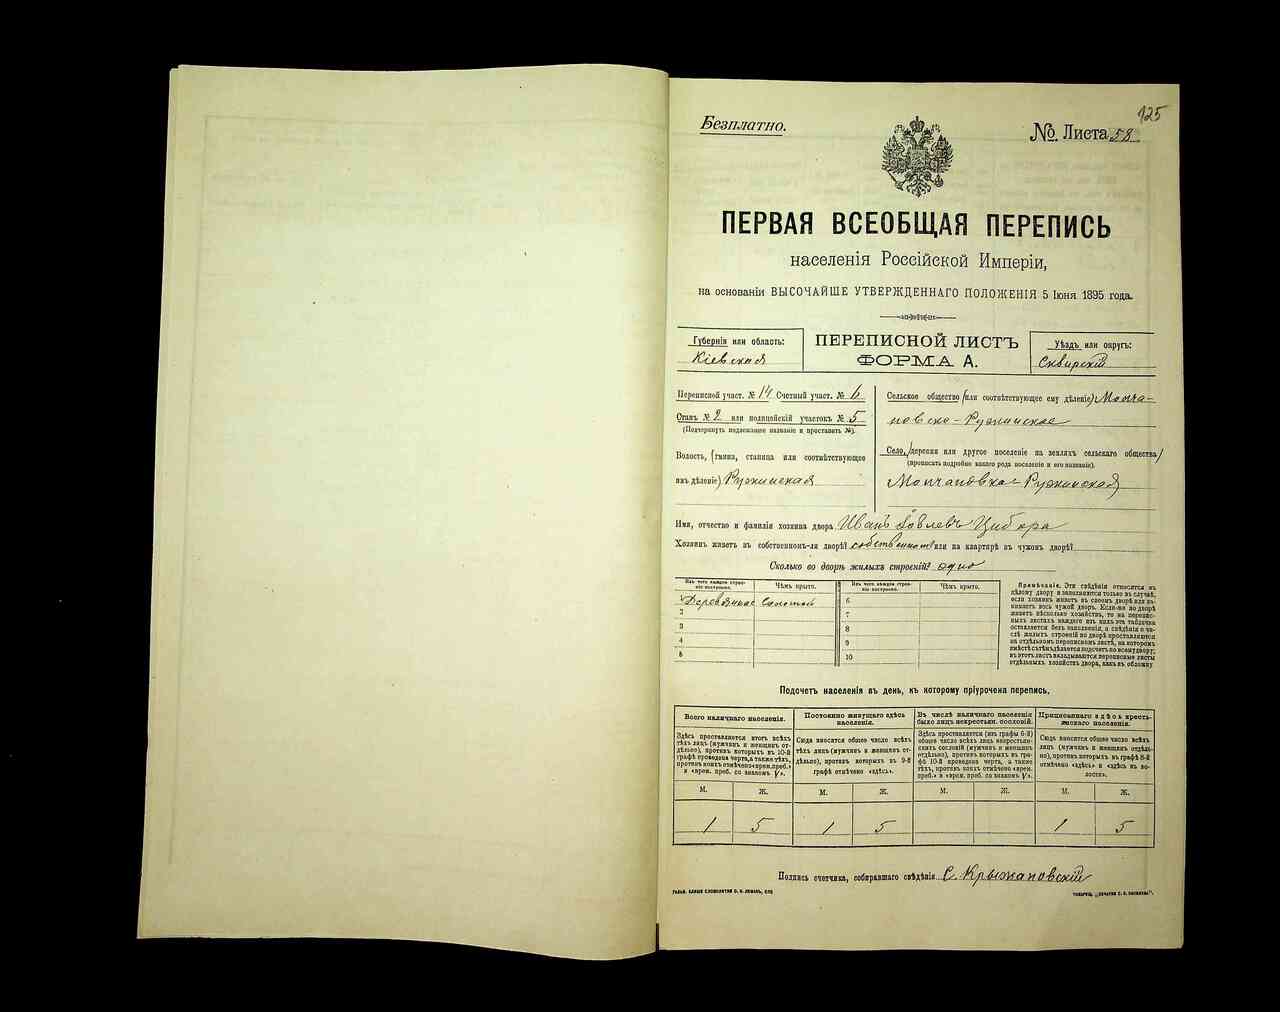 125
Безплатно.
№ Листа 58
ПЕРВАЯ ВСЕОБЩАЯ ПЕРЕПИСЬ
населенія Россійской Имперіи,
на основаніи ВЫСОЧАЙШЕ УТВЕРЖДЕННАГО ПОЛОЖЕНІЯ 5 Іюня 1895 года.
Губернія или область:
Кіевская
ПЕРЕПИСНОЙ ЛИСТЪ
ФОРМА А.
Уѣздъ или округъ:
Сквирскій
Переписной участ. № 14 Счетный участ. № 6
Станъ № 2 или полицейскій участокъ № 5
(Подчеркнуть подлежащее названіе и проставить №).
Волость, (гмина, станица или соотвѣтствующее
имъ дѣленіе) Ружинская
Сельское общество (или соотвѣтствующее ему дѣленіе) Молча-
новско-Ружинское
Село, деревня или другое поселеніе на земляхъ сельскаго общества
(прописать подробно какого рода поселеніе и его названіе).
Молчановка-Ружинская
Имя, отчество и фамилія хозяина двора Иванъ Іовлевъ Цибора
Хозяинъ живетъ въ собственномъ-ли дворѣ? собственномъ или на квартирѣ въ чужомъ дворѣ?
Сколько во дворѣ жилыхъ строеній? одно
Изъ чего каждое строе-
ніе построено.
Чѣмъ крыто.
Изъ чего каждое строе-
ніе построено.
Чѣмъ крыто.
Деревянное Соломой
2
3
4
5
6
7
8
9
10
Примѣчаніе. Эти свѣдѣнія относятся къ
цѣлому двору и заполняются только въ случаѣ,
если хозяинъ живетъ въ своемъ дворѣ или за-
нимаетъ весь чужой дворъ. Если-же во дворѣ
живетъ нѣсколько хозяйствъ, то на перепис-
ныхъ листахъ каждаго изъ нихъ эта табличка
оставляется безъ заполненія, а свѣдѣнія о чи-
слѣ жилыхъ строеній во дворѣ проставляются
на отдѣльномъ переписномъ листѣ, на которомъ
вмѣстѣ съ тѣмъ дѣлается подсчетъ по всему двору;
въ этотъ листъ вкладываются переписные листы
отдѣльныхъ хозяйствъ двора, какъ въ обложку.
Подсчетъ населенія въ день, къ которому пріурочена перепись.
Всего наличнаго населенія.
Здѣсь проставляется итогъ всѣхъ
тѣхъ лицъ (мужчинъ и женщинъ от-
дѣльно), противъ которыхъ въ 10-й
графѣ проведена черта, а также тѣхъ,
противъ коихъ отмѣчено «врем. преб.»
и «врем. преб. со знакомъ V».
Постоянно живущаго здѣсь
населенія.
Сюда вносится общее число всѣхъ
тѣхъ лицъ (мужчинъ и женщинъ от-
дѣльно), противъ которыхъ въ 9-й
графѣ отмѣчено «здѣсь».
Въ числѣ наличнаго населенія
было лицъ некрестьян. сословій.
Здѣсь проставляется (изъ графы 6-й)
общее число всѣхъ лицъ некрестьян-
скихъ сословій (мужчинъ и женщинъ
отдѣльно), противъ которыхъ въ гра-
фѣ 10-й проведена черта, а также
противъ коихъ отмѣчено «врем.
преб.» и «врем. преб. со знакомъ V».
Приписаннаго здѣсь кресть-
янскаго населенія.
Сюда вносится общее число всѣхъ
лицъ (мужчинъ и женщинъ отдѣль-
но), противъ которыхъ въ графѣ 8-й
отмѣчено «здѣсь» и «здѣсь въ во-
лости».
М. Ж. М. Ж. М. Ж. М. Ж.
1 5 1 5 1 5
Подпись счетчика, собиравшаго свѣдѣнія С. Крыжановскій